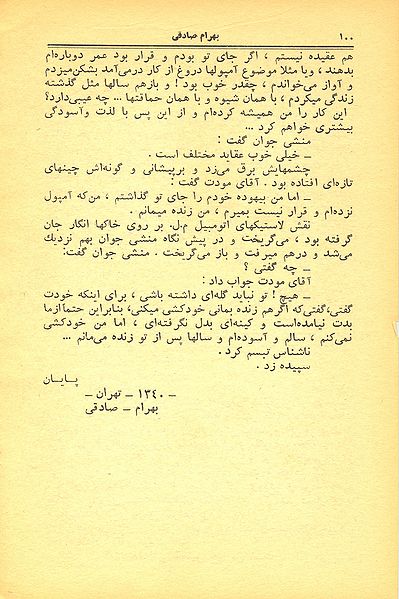 ۱۰۰ بهرام صادقی
هم عقیده نیستم ، اگر جای تو بودم و قرار بود عمر دوباره‌ام
بدهند ، ویا مثلا موضوع آمپولها دروغ از کار درمی‌آمد بشکن‌میزدم
و آواز می‌خواندم ، چقدر خوب بود ! و بازهم سالها مثل گذشته
زندگی میکردم ، با همان شیوه و با همان حماقتها ... چه عیبی‌دارد؟
این کار را من همیشه کرده‌ام و از این پس با لذت وآسودگی
بیشتری خواهم کرد ...
منشی جوان گفت :
ــ خیلی خوب عقاید مختلف است .
چشمهایش برق می‌زد و برپیشانی و گونه‌اش چینهای
تازه‌ای افتاده بود . آقای مودت گفت :
ــ اما من بیهوده خودم را جای تو گذاشتم ، من‌که آمپول
نزده‌ام و قرار نیست بمیرم ، من زنده میمانم .
نقش لاستیکهای اتومبیل م.ل. بر روی خاکها انگار جان
گرفته بود ، می‌گریخت و در پیش نگاه منشی جوان بهم نزدیك
می‌شد و درهم میرفت و باز می‌گریخت . منشی جوان گفت:
ــ چه گفتی ؟
آقای مودت جواب داد :
ــ هیچ ! تو نباید گله‌ای داشته باشی ، برای اینکه خودت
گفتی،گفتی‌که اگرهم زنده بمانی خودکشی میکنی، بنابراین حتماًازما
بدت نیامده‌است و کینه‌ای بدل نگرفته‌ای ، اما من خودکشی
نمی‌کنم ، سالم و آسوده‌ام و سالها پس از تو زنده می‌مانم ...
ناشناس تبسم کرد .
سپیده زد .
پایان
ــ ۱۳۴۰ ــ تهران ــ
بهرام ــ صادقی